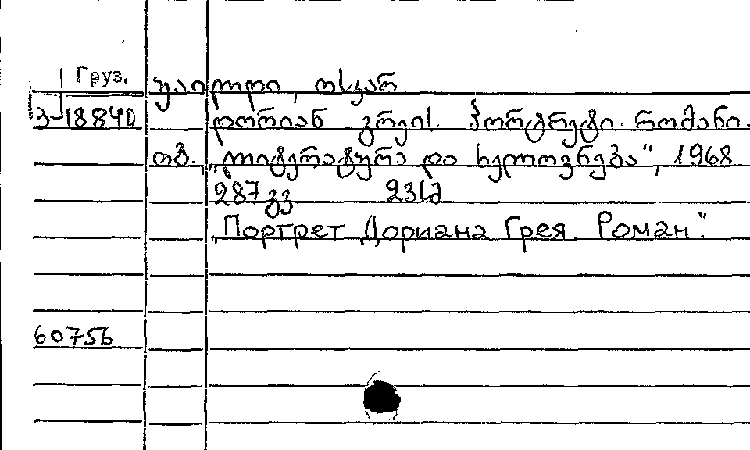 Груз. უაილდი, ოსკარ
3-18840 დორიან გრეის პორტრეტი. რომანი.
თბ. „ლიტერატურა და ხელოვნება", 1968
287 გვ 23სმ
„Портрет Дориана Грея. Роман."
60756